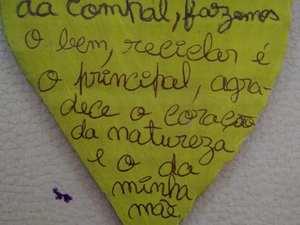 da comhal, fazemos
o bem, reciclar é
o principal, agra-
dece o coração
da natureza
e o da
minha
mãe.